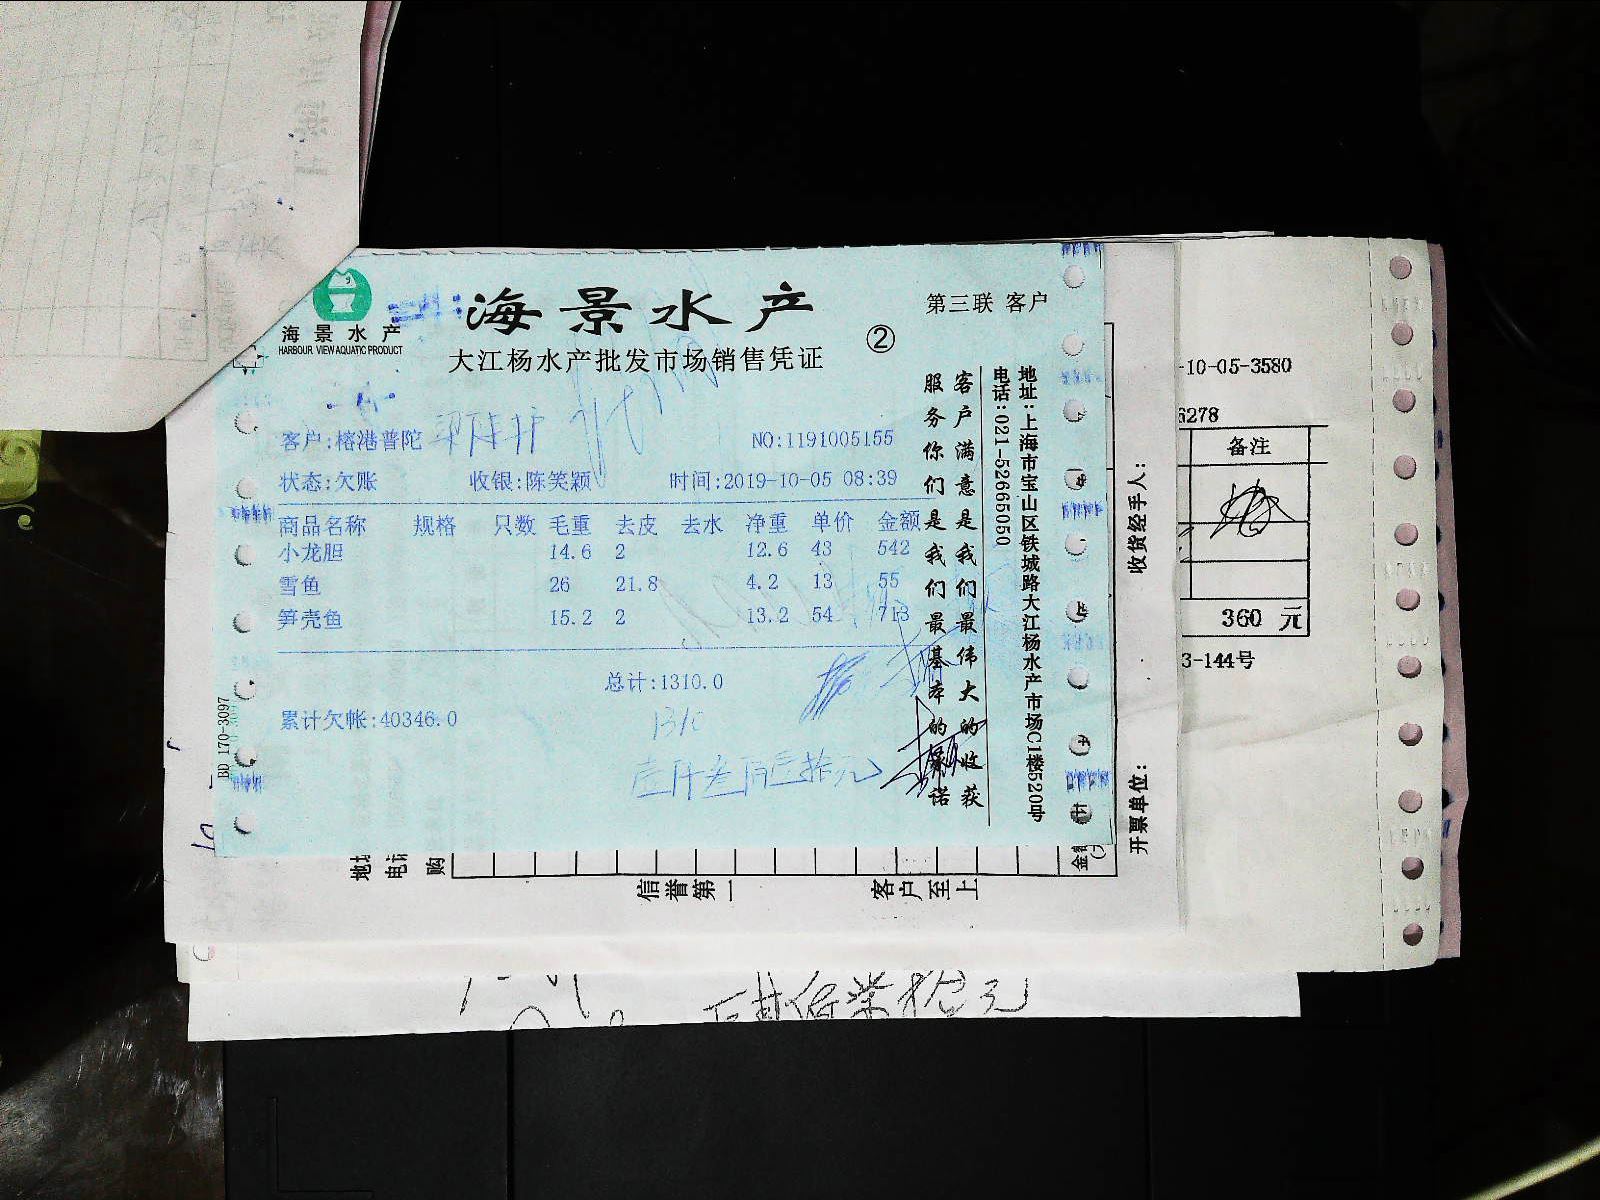 海景水产
HARBOUR VIEW AQUATIC PRODUCT
海景水产
大江杨水产批发市场销售凭证
②
第三联 客户
客户:榕港普陀
NO:1191005155
状态:欠账 收银:陈笑颖 时间:2019-10-05 08:39
商品名称 规格 只数 毛重 去皮 去水 净重 单价 金额
小龙胆 14.6 2 12.6 43 542
雪鱼 26 21.8 4.2 13 55
笋壳鱼 15.2 2 13.2 54 713
总计:1310.0
累计欠帐:40346.0
1310
壹仟叁佰壹拾元
BD 170-3097
客户满意是我们最伟大的收获
服务你们是我们最基本的承诺
地址:上海市宝山区铁城路大江杨水产市场C1楼520号
电话:021-52665050
收货经手人:
开票单位:
-10-05-3580
6278
备注
360 元
3-144号
电话
购
信誉第一
客户至上